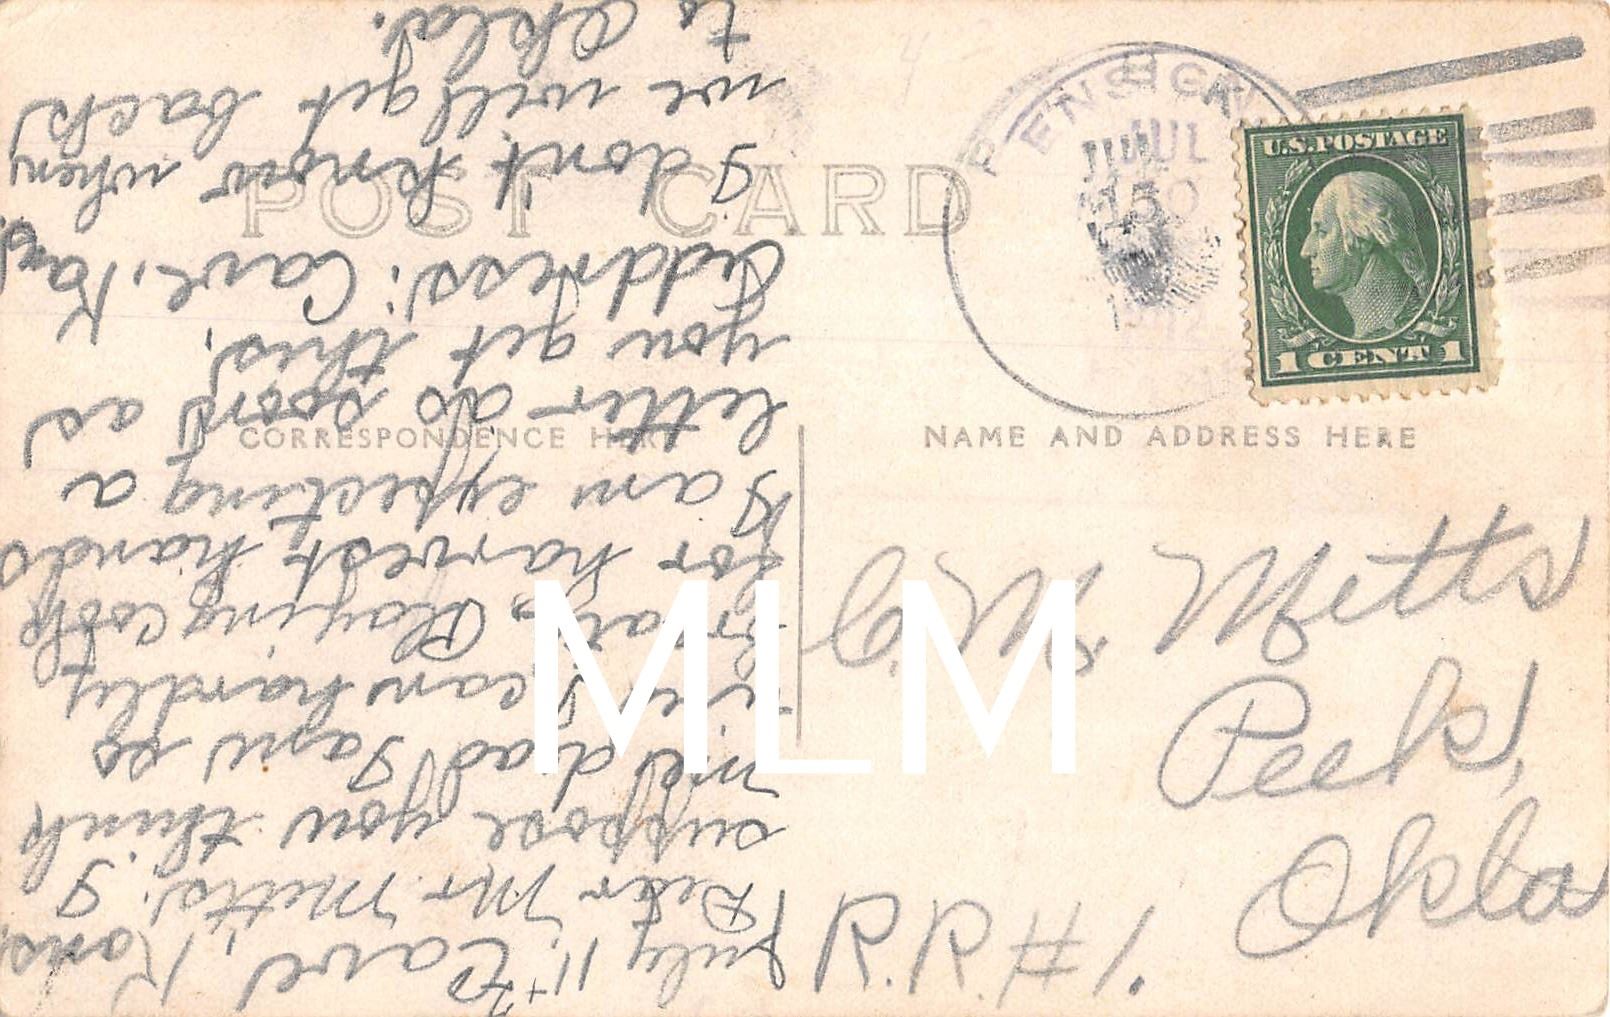 July 11th Cave, Kans,
Dear Mr. Metts. I
suppose you think
me dead I am so
in I can hardly
brag, Playing cook
for harvest hands
I am expecting a
letter as soon as
you get this,
Address; Cave, Kans.
I don't know when
we will get back
to Okla.
POST CARD
CORRESPONDENCE HERE
NAME AND ADDRESS HERE
ENSIGN
JUL
1912
U.S. POSTAGE
1 CENT 1
C. W. Metts
Peek,
Okla
R.R. #1.
MLM